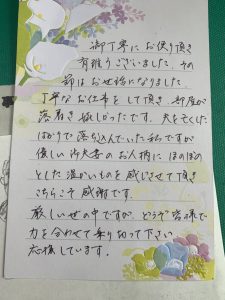 御丁寧にお便り頂き
有難うございました。その
節はお世話になりました。
丁寧なお仕事をして頂き、部屋が
落着き嬉しかったです。夫を亡くした
ばかりで落ち込んでいた私ですが
優しい御夫妻のお人柄にほのぼの
とした温かいものを感じさせて頂き
こちらこそ感謝です。
厳しい世の中ですが、どうぞ皆様で
力を合わせて乗り切って下さい。
応援しています。